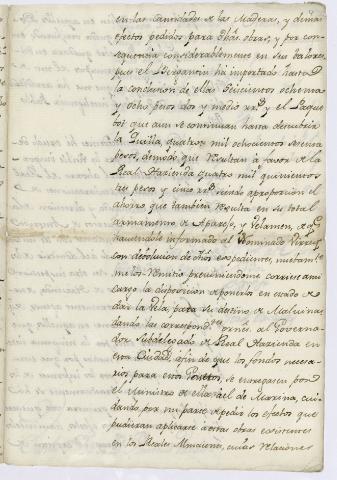 en las cantidades de las Maderas, y demas
efectos pedidos para dhas. obras, y por con-
sequencia considerablemente en sus valores,
pues el Bergantin ha importado hasta
la conclusion de ellas Seiscientos ochenta
y ocho pesos dos y medio rrs. y el Paque
bot que aun se continuan hasta descubrir
la Quilla, quatro mil ochocientos
pesos, demodo que resultan à favor de la
Real Hacienda quatro mil quinientos
tres pesos y cinco rrs. siendo aproporcion el
ahorro que tambien resulta en su total
armamento de Aparejo, y Velamen, de q.e
haviendole informado al Nominado Virrey
con devolucion de dhos expedientes, mediante
me los remitio previniendome corriese ami
cargo la disposicion de ponerlos en estado de
dar la Vela, para su destino de Malvinas
dando las correspond.tes orns. al Governa-
dor Subdelegado de Real Hacienda en
esta Ciudad, afin de que los fondos necesa-
rios para estos se entregasen por
el Ministro de Real de Marina, cui-
dando por mi parte de pedir los efectos que
pudieran aplicarse à estas obras existentes
en los Reales Almacenes, cuias relaciones